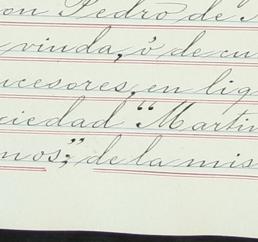 on Pedro de
vinda, ó de cu
ucesores, en liq
ciedad "Martin
nos"; de la mis